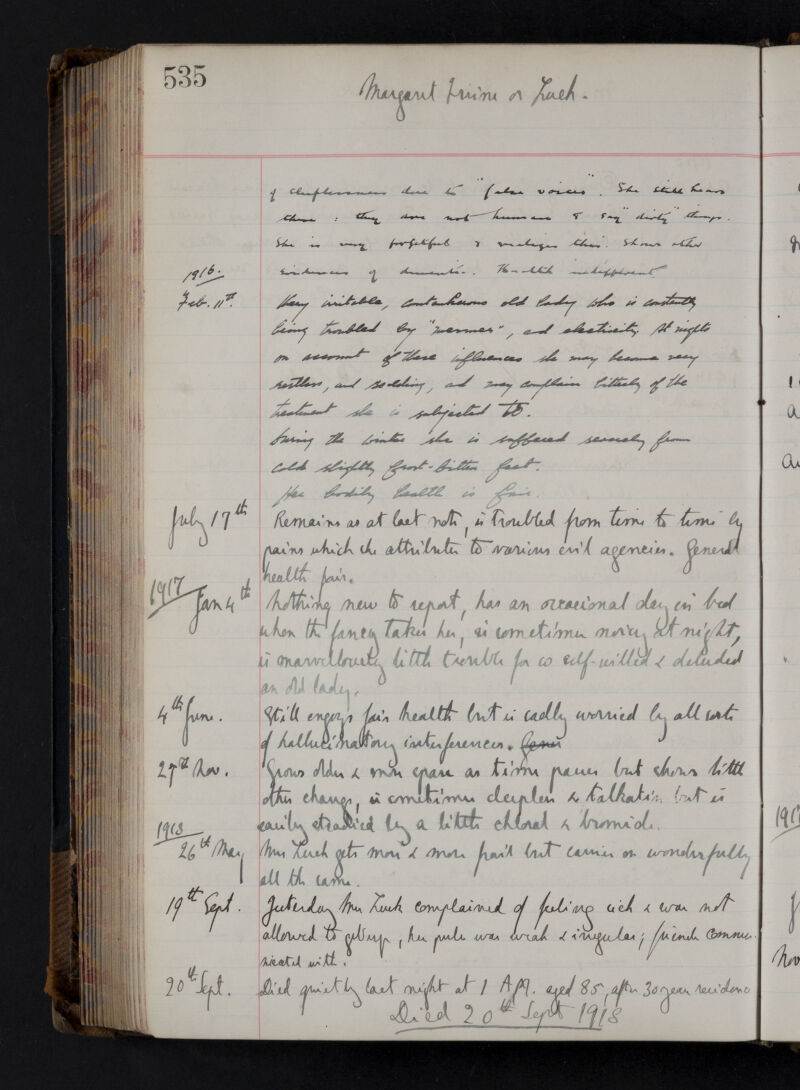 535
Margaret or
of sleeplessness due to "false voices". She still hears
them : they are not human & say "dirty" things.
She is very forgetful & this. Shows other
evidences of dementia. Health indifferent.
1916.
Feb. 11th. Very irritable, cantankerous old lady who is constantly
being troubled by "wormes", and electricity. At nights
on account of these influences she may become very
restless, and scolding, and may complain bitterly of the
treatment she is subjected to.
During the winter she is suffered severely from
cold slightly frost-bitten feet.
Her bodily health is fair.
July 17th Remains as at last note, is troubled from time to time by
pains which she attributes to various evil agencies. General
health fair.
1917
Jan 4th Nothing new to report, has an occasional day in bed
when the fancy takes her, is sometimes noisy at night,
is marvellously little trouble for so self-willed & deluded
an old lady.
4th June. Still enjoys fair health but is sadly worried by all sorts
of hallucinatory interferences. Gener
27th Nov. Grows older & more spare as time passes but shows little
other change, is sometimes sleepless & talkative but is
easily steadied by a little chloral & bromide.
1918
26th May Mrs gets more & more frail but carries on wonderfully
all the same.
19th Sept. Yesterday Mrs complained of feeling sick & was not
allowed to get up, her pulse was weak & irregular; friends commu-
nicated with.
20th Sept. Died quietly last night at 1 A.M. aged 85, after 30 years residence
Died 20th Sept 1918